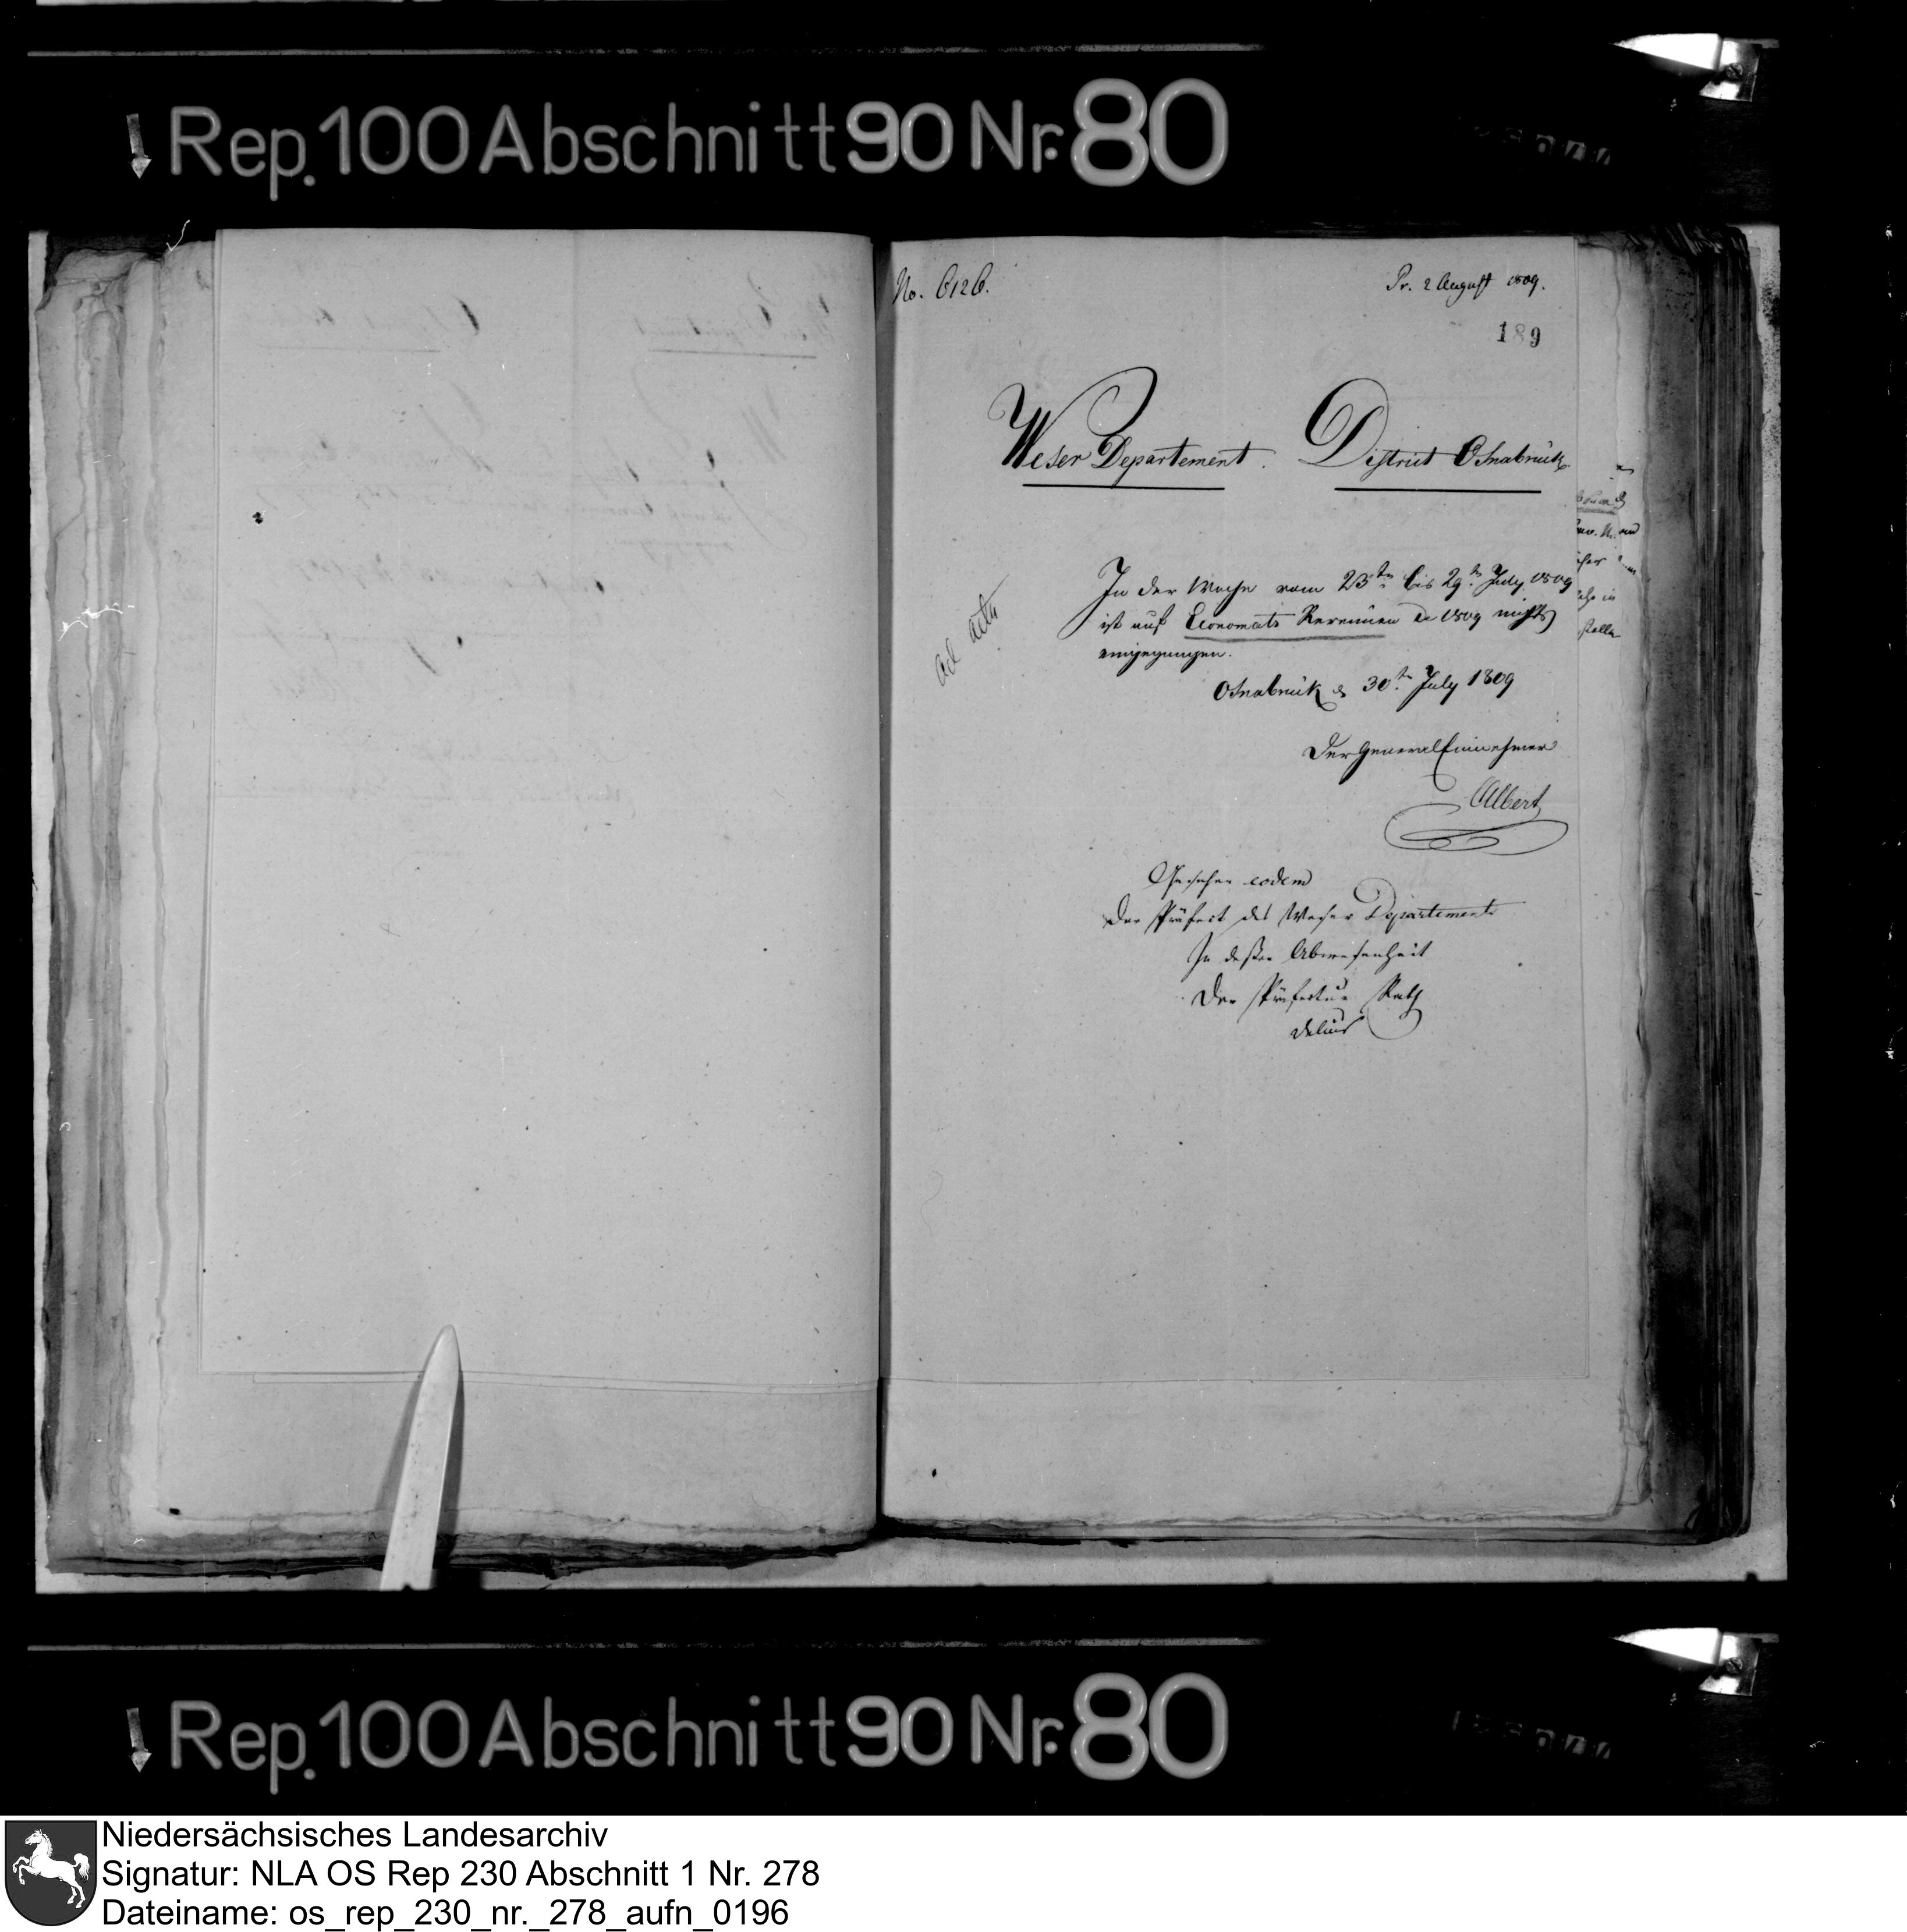 Rep. 100 Abschnitt 90 Nr. 80
No. 6126.
Pr. 2 August 1809.
189
Weser Departement. District Osnabrück
In der Woche vom 23ten bis 29ten July 1809
ist auf Economats Revenüen de 1809 nichts
eingegangen.
ad acta
Osnabrück d 30ten July 1809
Der General Einnehmer
Albert
Gesehen eodem
Der Präfect des Weser Departements
In deßen Abwesenheit
Der Präfectur Rath
Delius
Rep. 100 Abschnitt 90 Nr. 80
Niedersächsisches Landesarchiv
Signatur: NLA OS Rep 230 Abschnitt 1 Nr. 278
Dateiname: os_rep_230_nr._278_aufn_0196